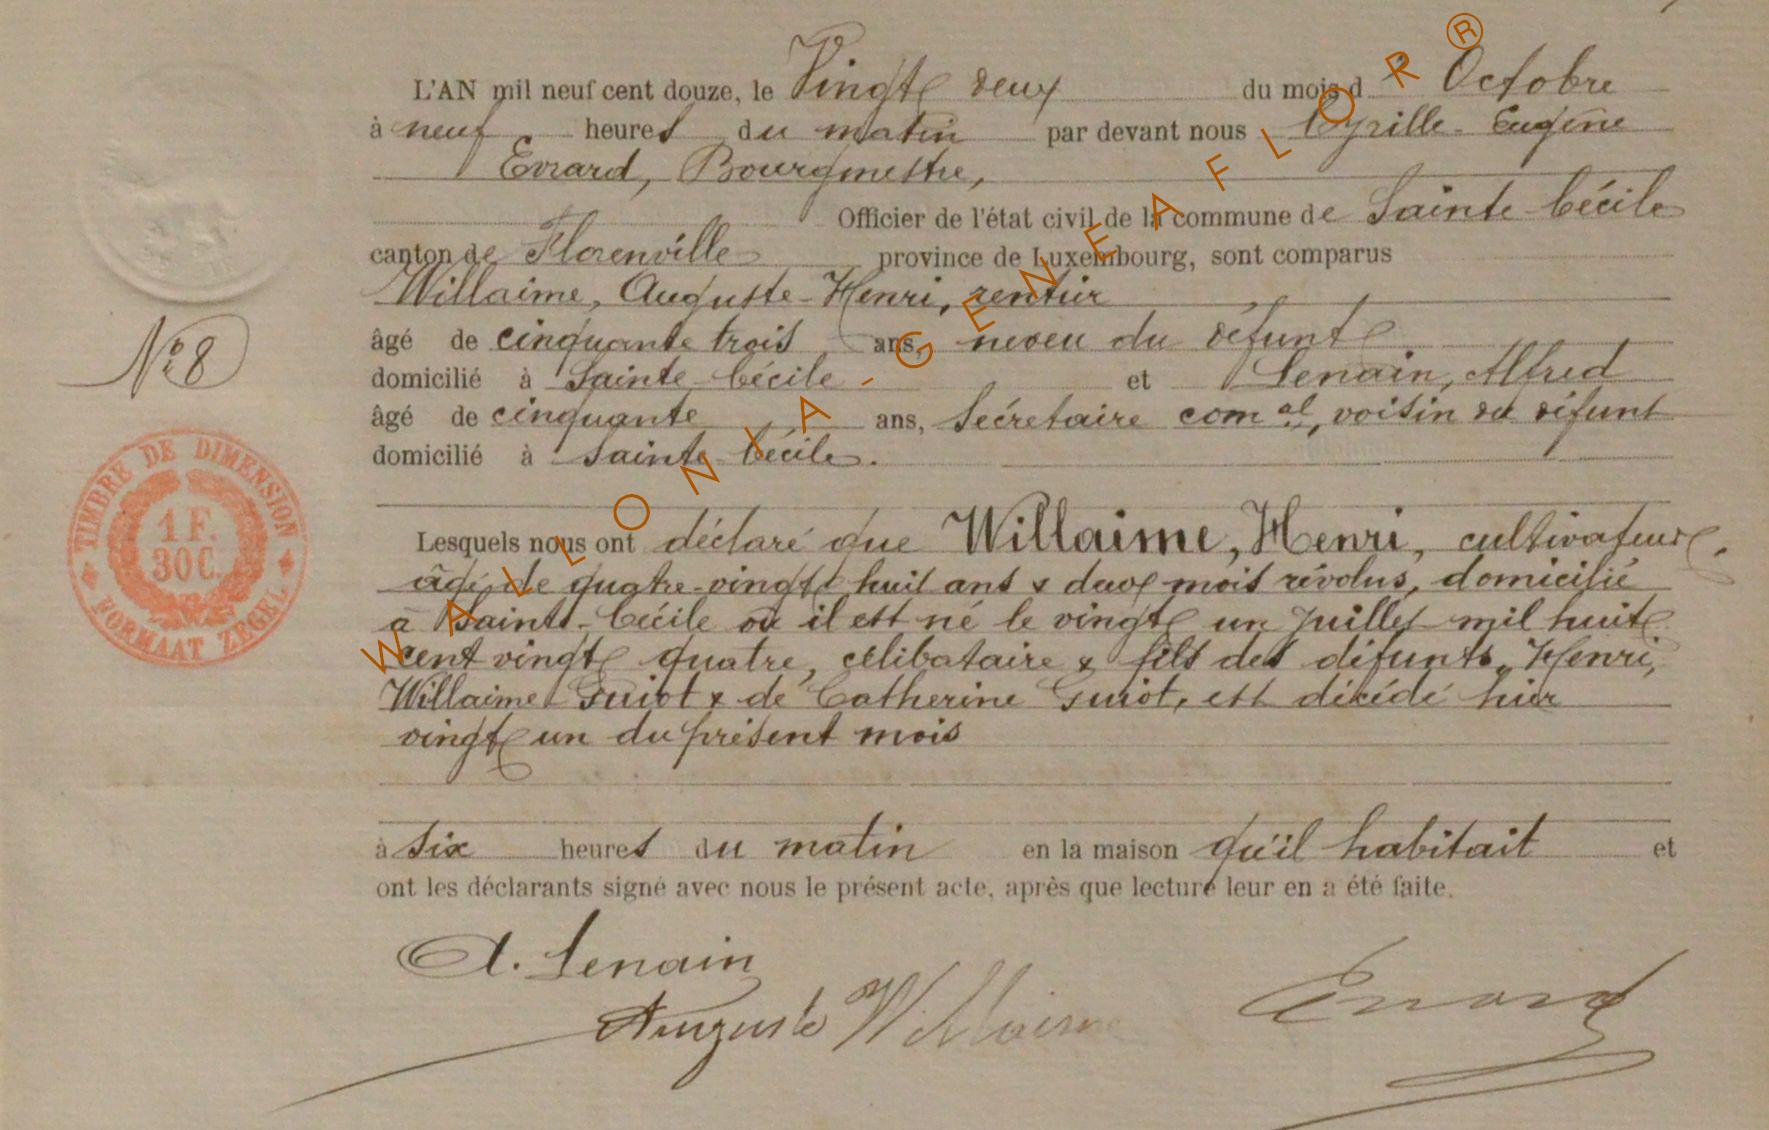 L'AN mil neuf cent douze, le Vingt deux du mois d'Octobre
à neuf heures du matin par devant nous Cyrille Eugène
Evrard, Bourgmestre,
Officier de l'état civil de la commune de Sainte Cécile
canton de Florenville province de Luxembourg, sont comparus
Willaime, Auguste-Henri, rentier
âgé de cinquante trois ans, neveu du défunt
domicilié à Sainte Cécile et Lenain, Alfred
âgé de cinquante ans, Secrétaire comal, voisin du défunt
domicilié à Sainte Cécile.
N° 8
TIMBRE DE DIMENSION
1 F.
30 C.
FORMAAT ZEGEL
Lesquels nous ont déclaré que Willaime, Henri, cultivateur,
âgé de quatre-vingt huit ans & deux mois révolus, domicilié
à Sainte-Cécile où il est né le vingt un Juillet mil huit
cent vingt quatre, célibataire & fils des défunts, Henri,
Willaime Guiot & de Catherine Guiot, est décédé hier
vingt un du présent mois
à six heures du matin en la maison qu'il habitait et
ont les déclarants signé avec nous le présent acte, après que lecture leur en a été faite.
A. Lenain
Auguste Willaime
Evrard
WALLONIA-GENEAFLOR®